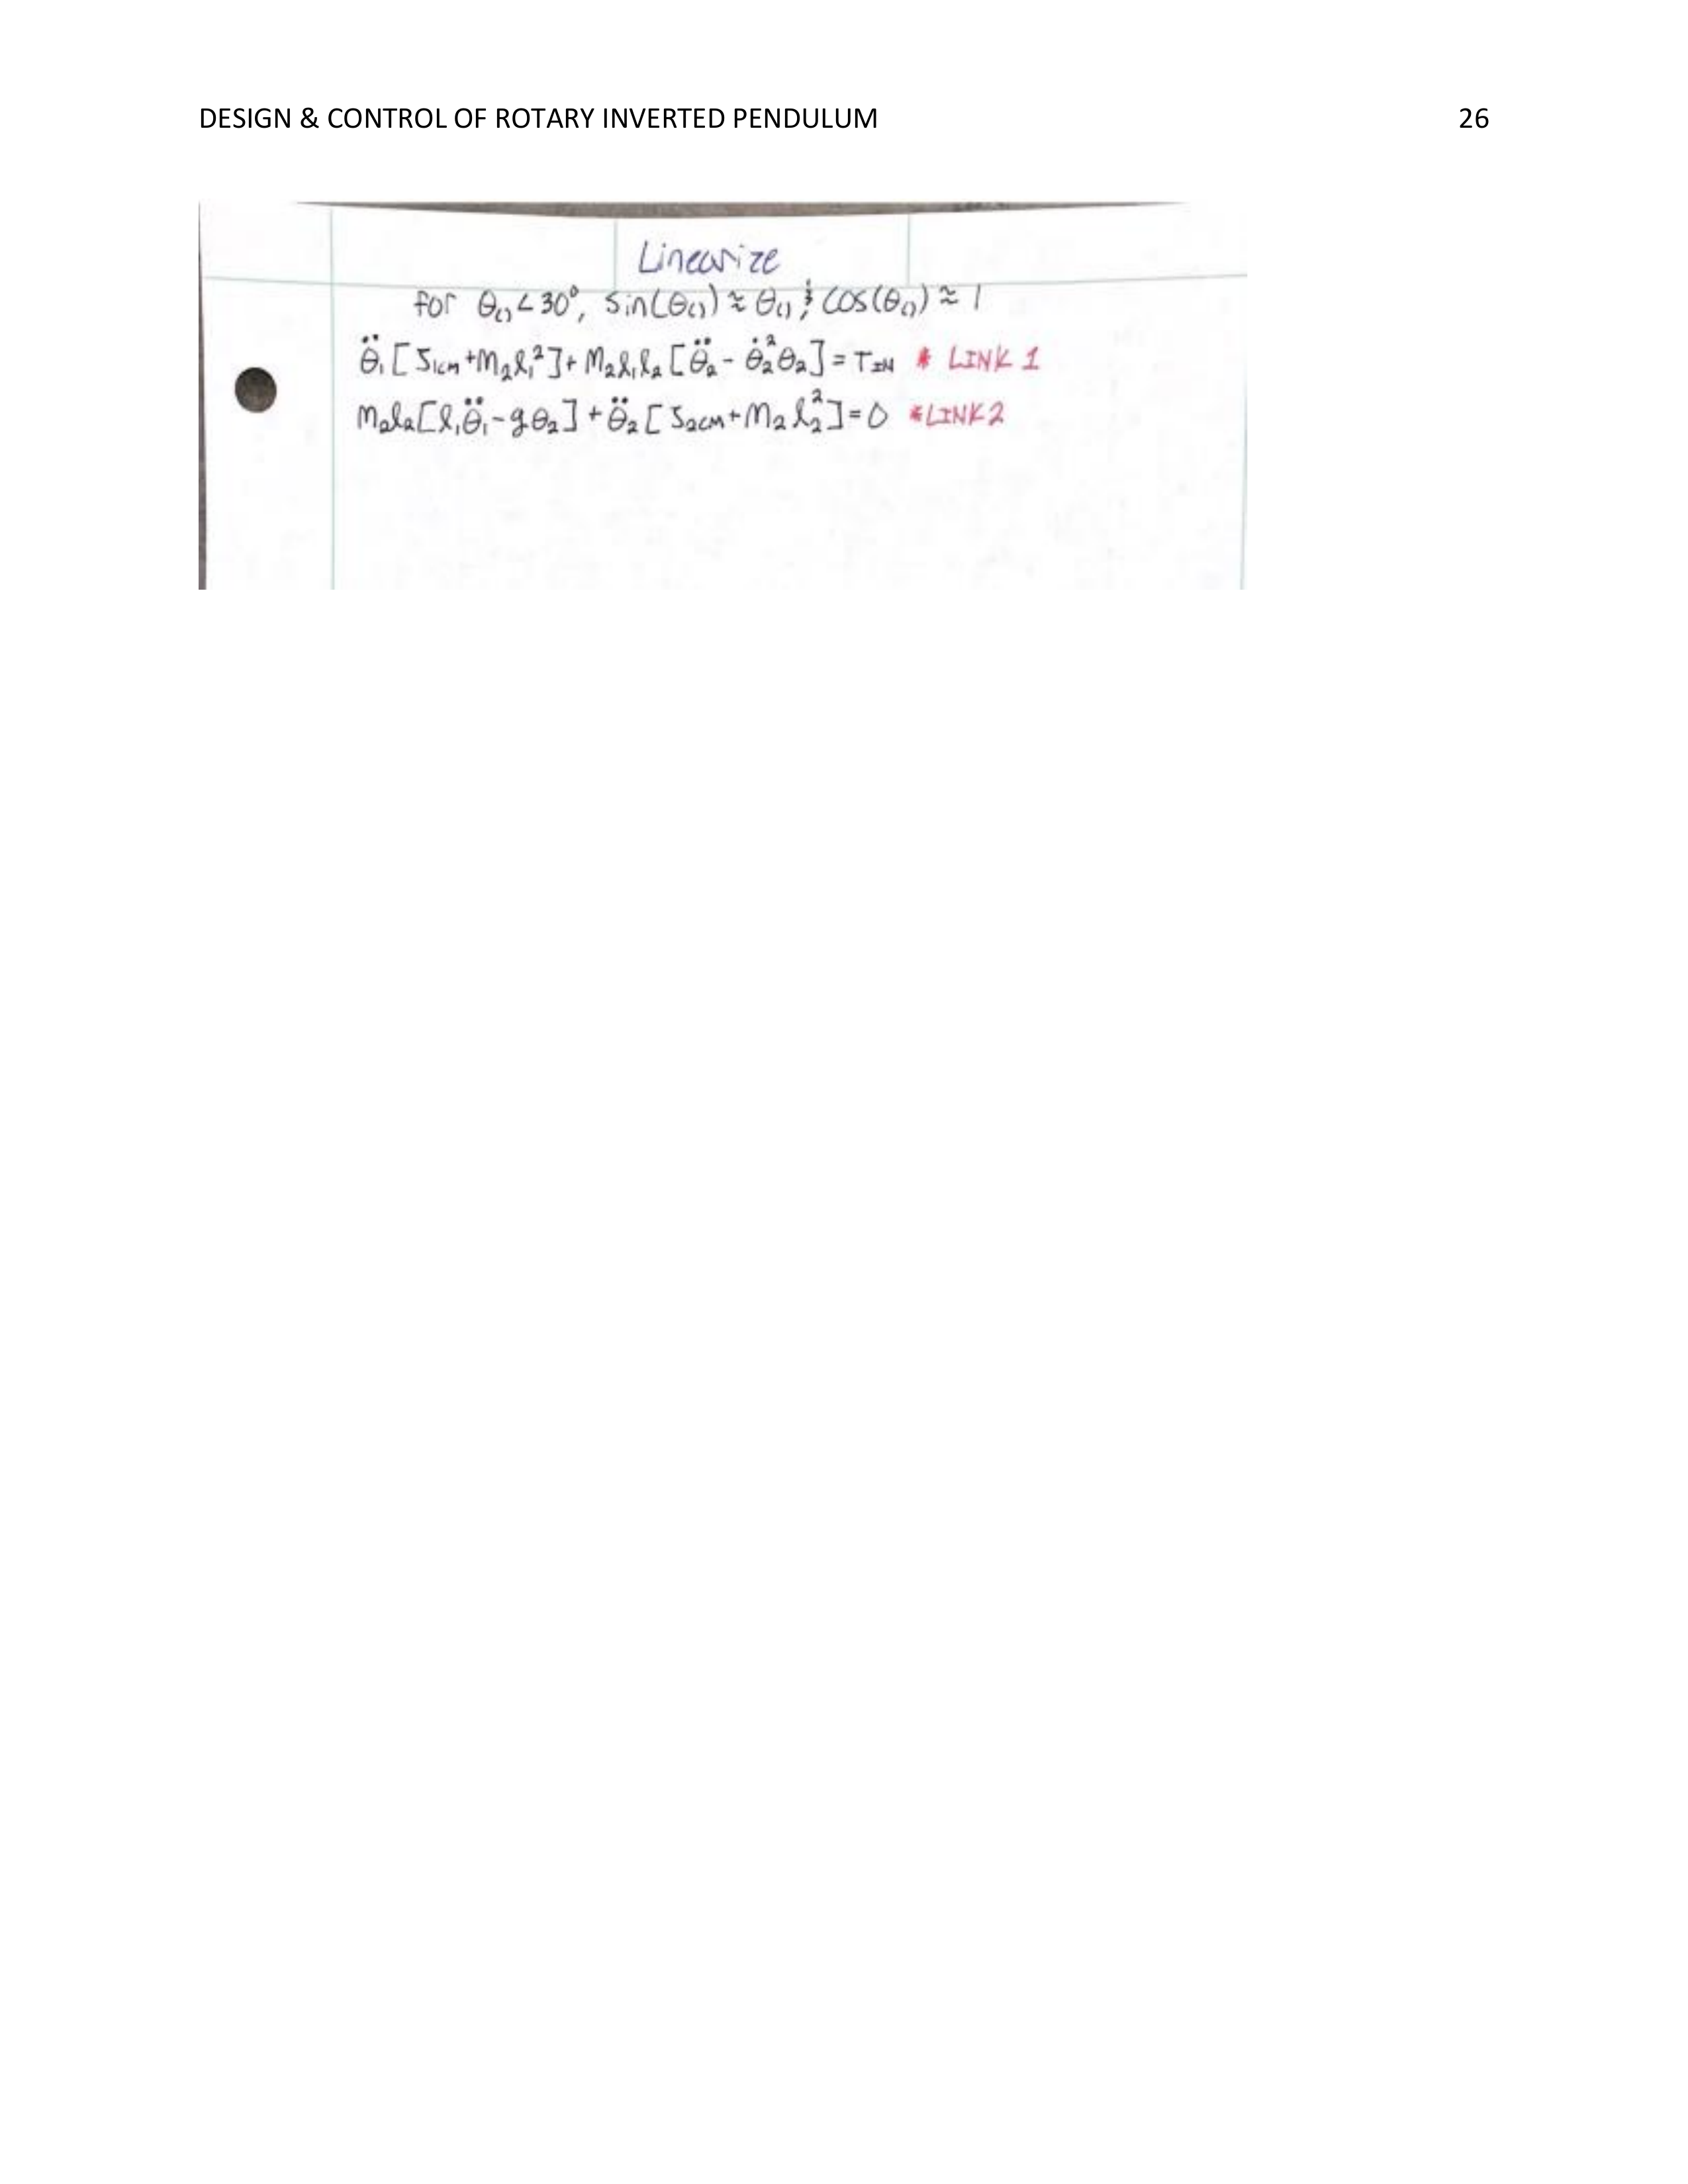 DESIGN & CONTROL OF ROTARY INVERTED PENDULUM 26
Linearize
for θ₍₎ < 30°, sin(θ₍₎) ≈ θ₍₎ ; & cos(θ₍₎) ≈ 1
θ̈₁[J₁cm+m₂l₁²]+m₂l₁l₂[θ̈₂-θ̇₂²θ₂]=τ_IN * LINK 1
m₂l₂[l₁θ̈₁-gθ₂]+θ̈₂[J₂cm+m₂l₂²]=0 *LINK2